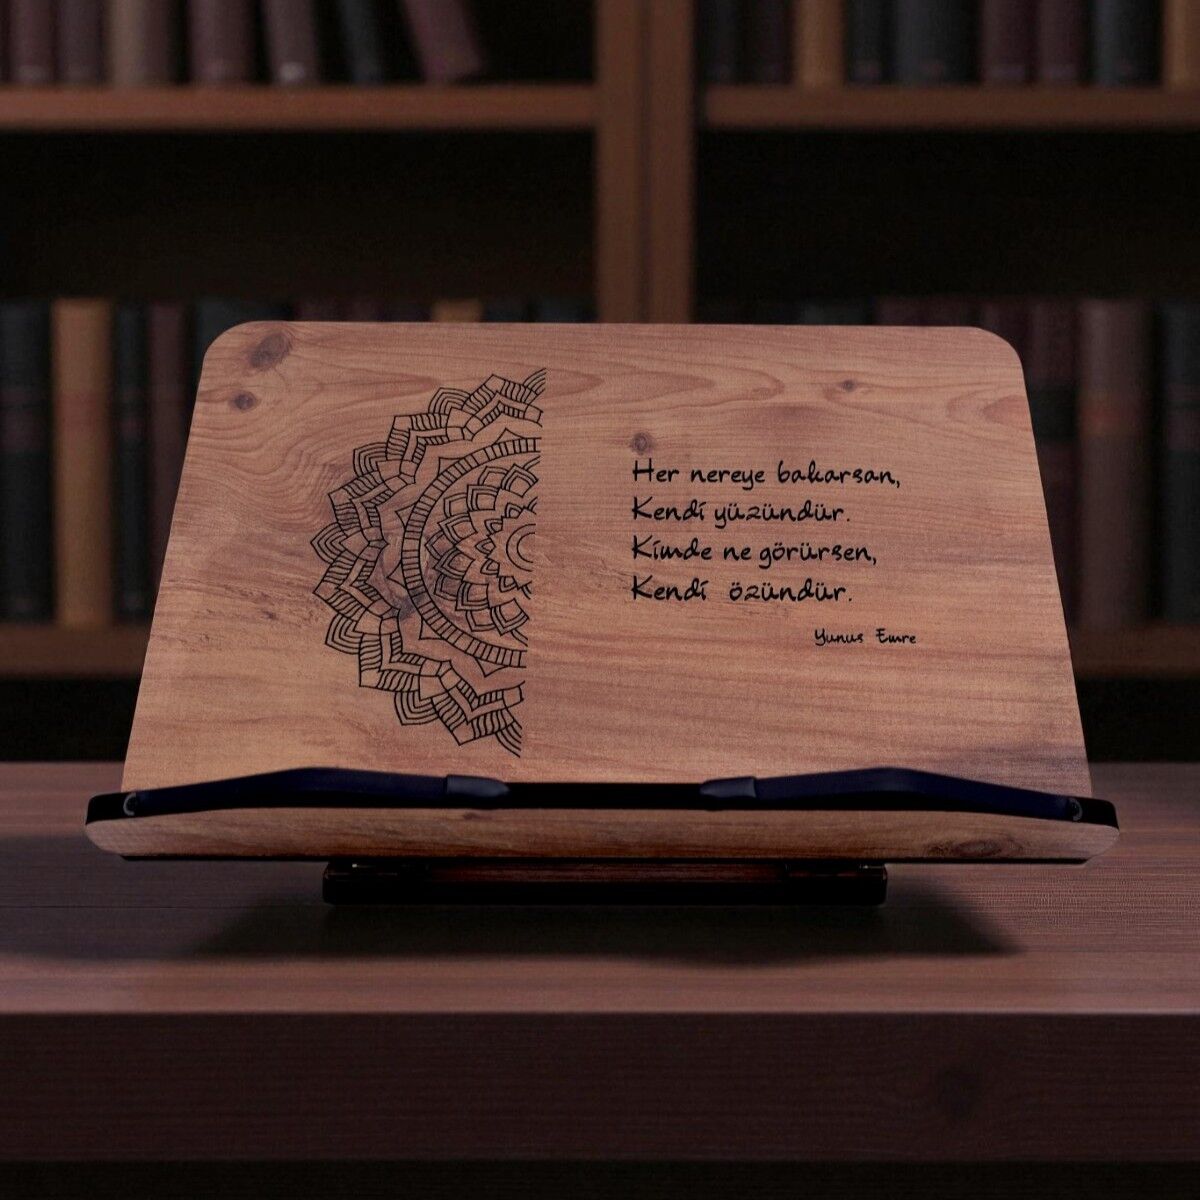 Her nereye bakarsan,
Kendi yüzündür.
Kimde ne görürsen,
Kendi özündür.
Yunus Emre